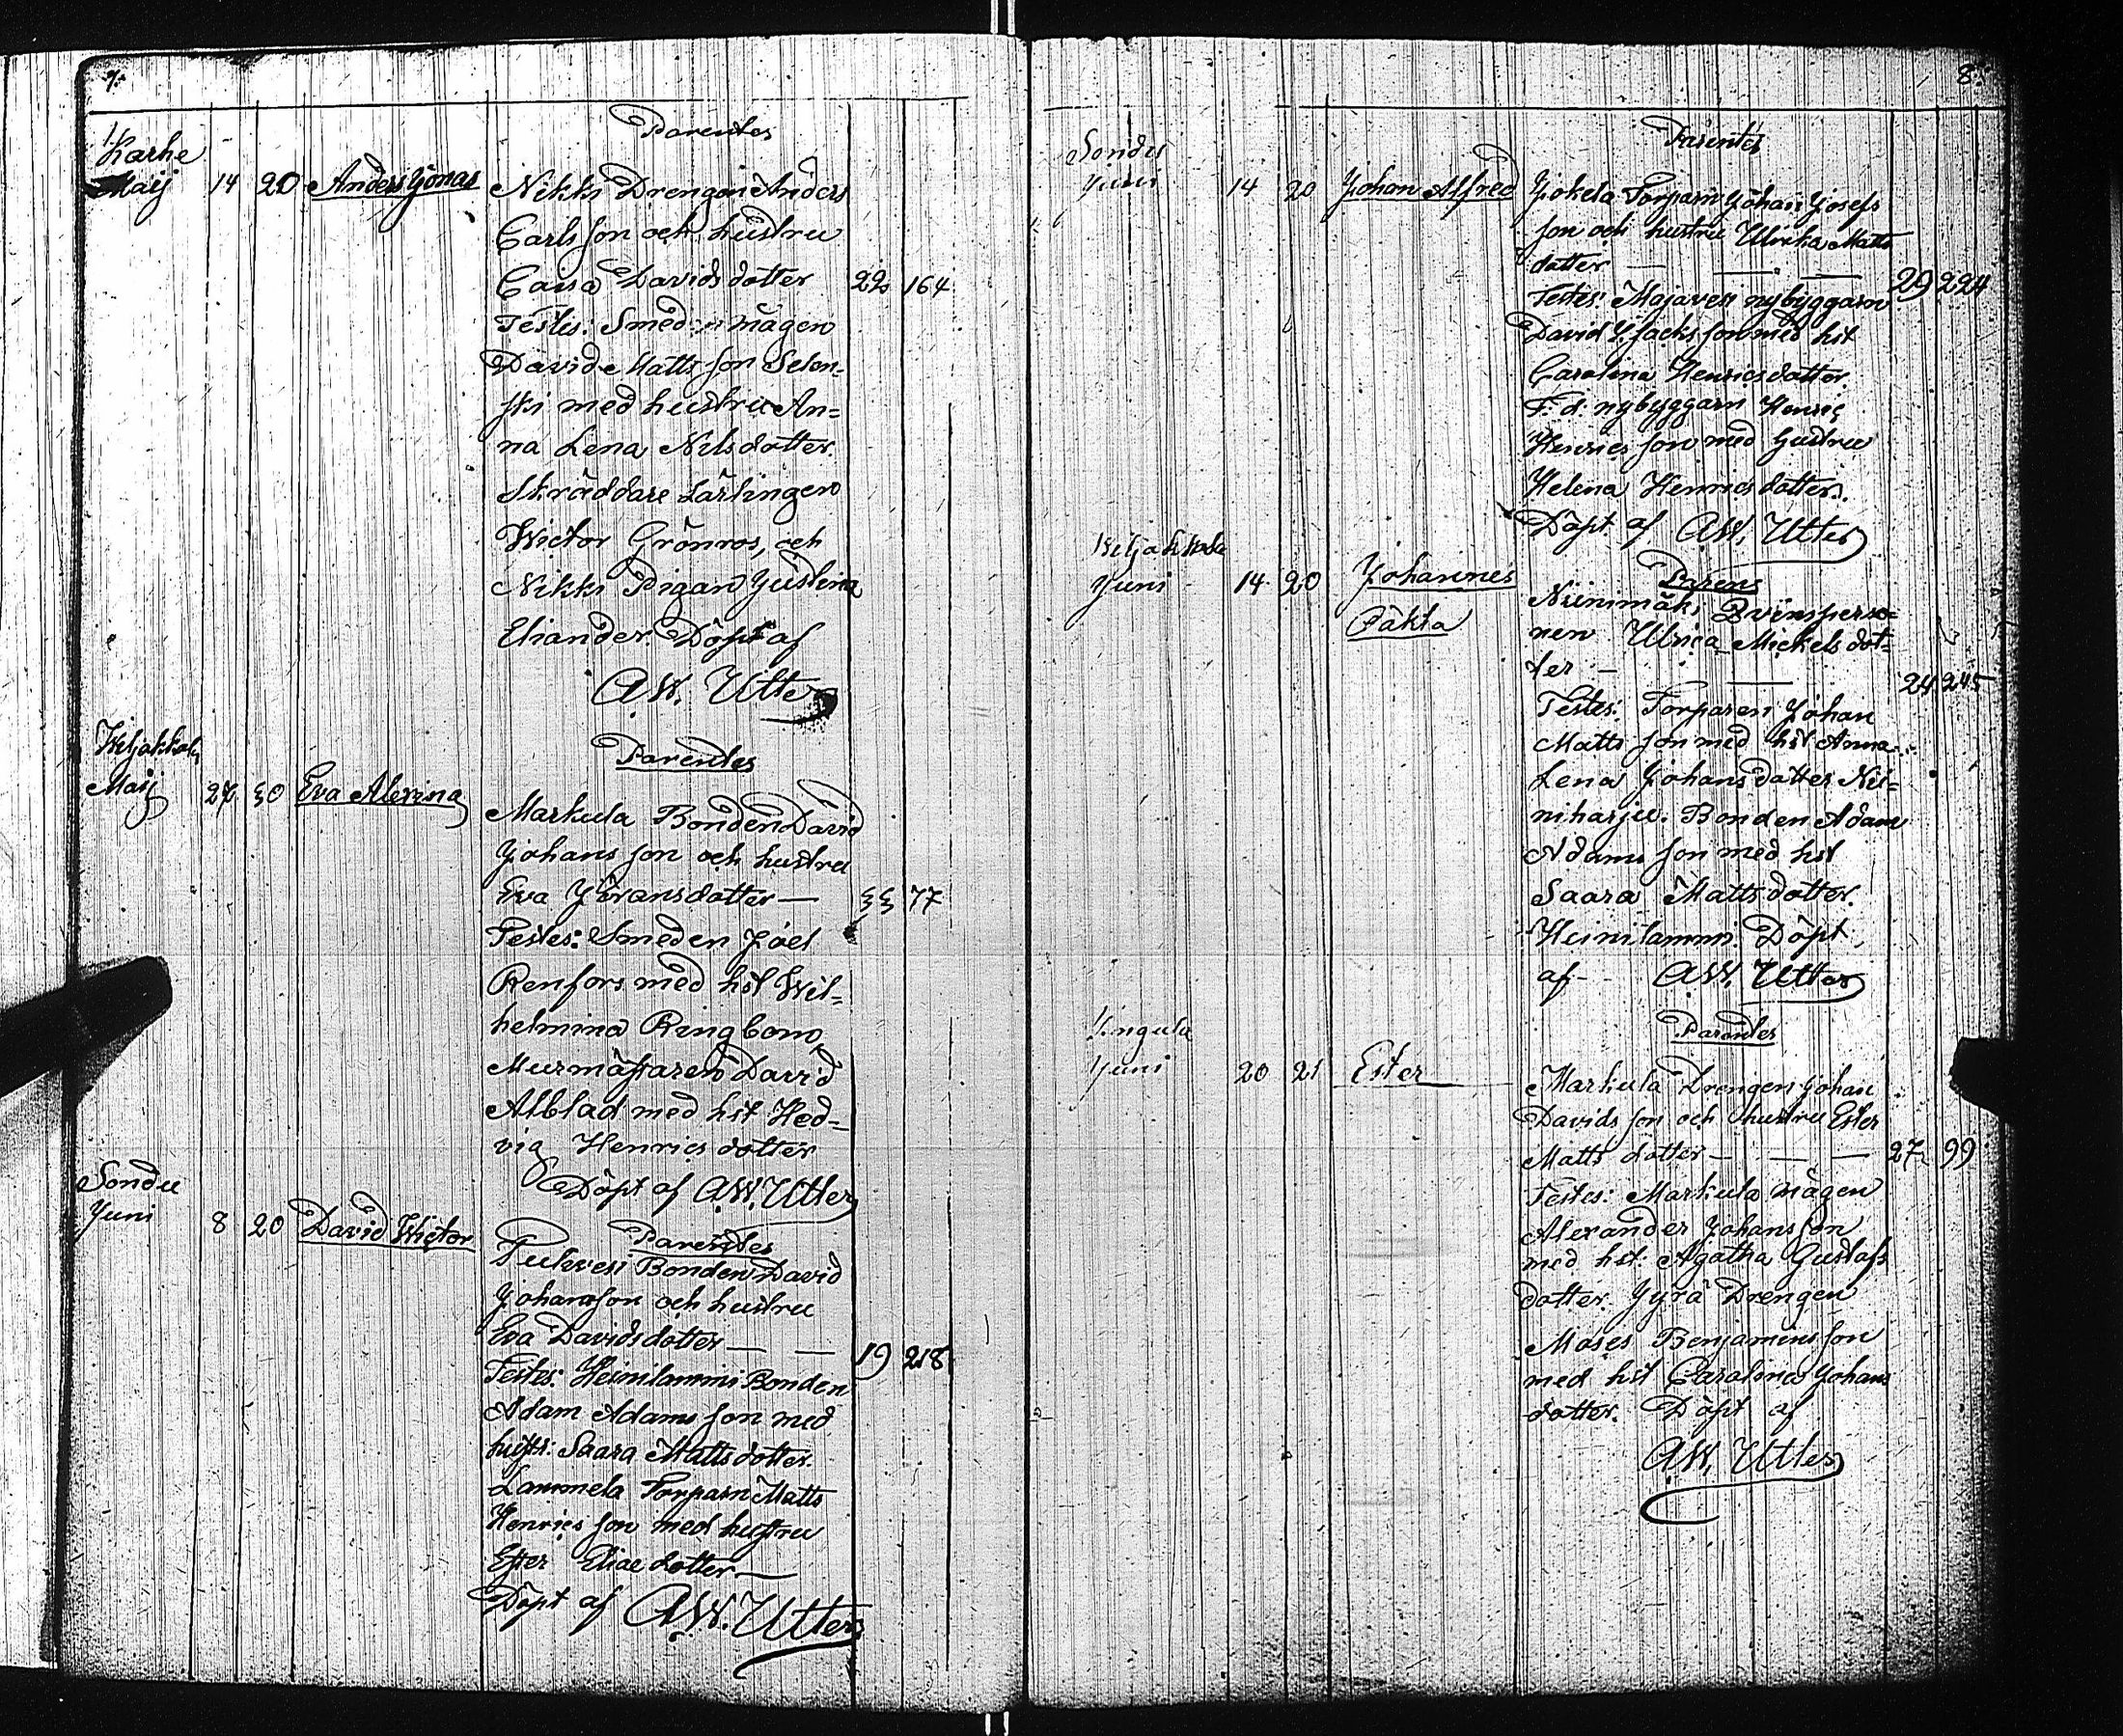 7.
Parentes
Karhe
Maij 14 20 Anders Jonas Nikki Drengen Anders
Carls son och hustru
Caisa Davids dotter 22 164
Testes: Smed: n mågen
David Matts son Selen-
ski med hustru An=
na Lena Nils dotter.
Skräddare Lärlingen
Wictor Grönros, och
Nikki Pigan Justina
Eliander. Döpt af
A.W. Utter
Parentes
Weljakkala
Maij 27 30 Eva Alexina
Markula Bonden David
Johans son och hustru
Eva Göransdotter — 33 77
Testes: Smeden Joel
Renfors med hst Wil=
helmina Ringbom
Murmästaren David
Alblad med hst Hed-
vig Henrics dotter
Döpt af A.W. Utter
Sondu
Juni 8 20 David Wictor
Parentes
Bonden David
Johansson och hustru
Eva Davids dotter — — 19 218
Testes: Heinilammi Bonden
Adam Adams son med
hustr: Saara Matts dotter.
Lammela Torparn Matts
Henrics son med hustru
Ester Eliae dotter —
Döpt af A.W. Utter
8.
Parentes
Sondu
Juni 14 20 Johan Alfred Jokela Torparn Johan Josefs
son och hustru Ulrika Matts
dotter — — — 29 224
Testes: Majavesi nybyggarn
David Isacks son med hst
Carolina Henrics dotter.
F. d. nybyggarn Henric
Henrics son med hustru
Helena Henrics dotter.
Döpt af A.W. Utter
Weljakkala
Juni 14 20 Johannes
Oäkta
Parens
Niinimäki Qvinsperso=
nen Ulrica Mickels dot=
ter — — 24 245
Testes: Torparen Johan
Matts son med hst Anna
Lena Johans dotter Nii=
niharju. Bonden Adam
Adams son med hst
Saara Matts dotter.
Heinilammi Döpt
af A.W. Utter
Parentes
Yngula
Juni 20 21 Ester
Markula Drengen Johan
Davids son och hustru Ester
Matts dotter — — — 27 99
Testes: Markula mågen
Alexander Johans son
med hst: Agatha Gustafs
dotter. Jyrä Drengen
Moses Benjamins son
med hst Carolina Johans
dotter. Döpt af
A.W. Utter